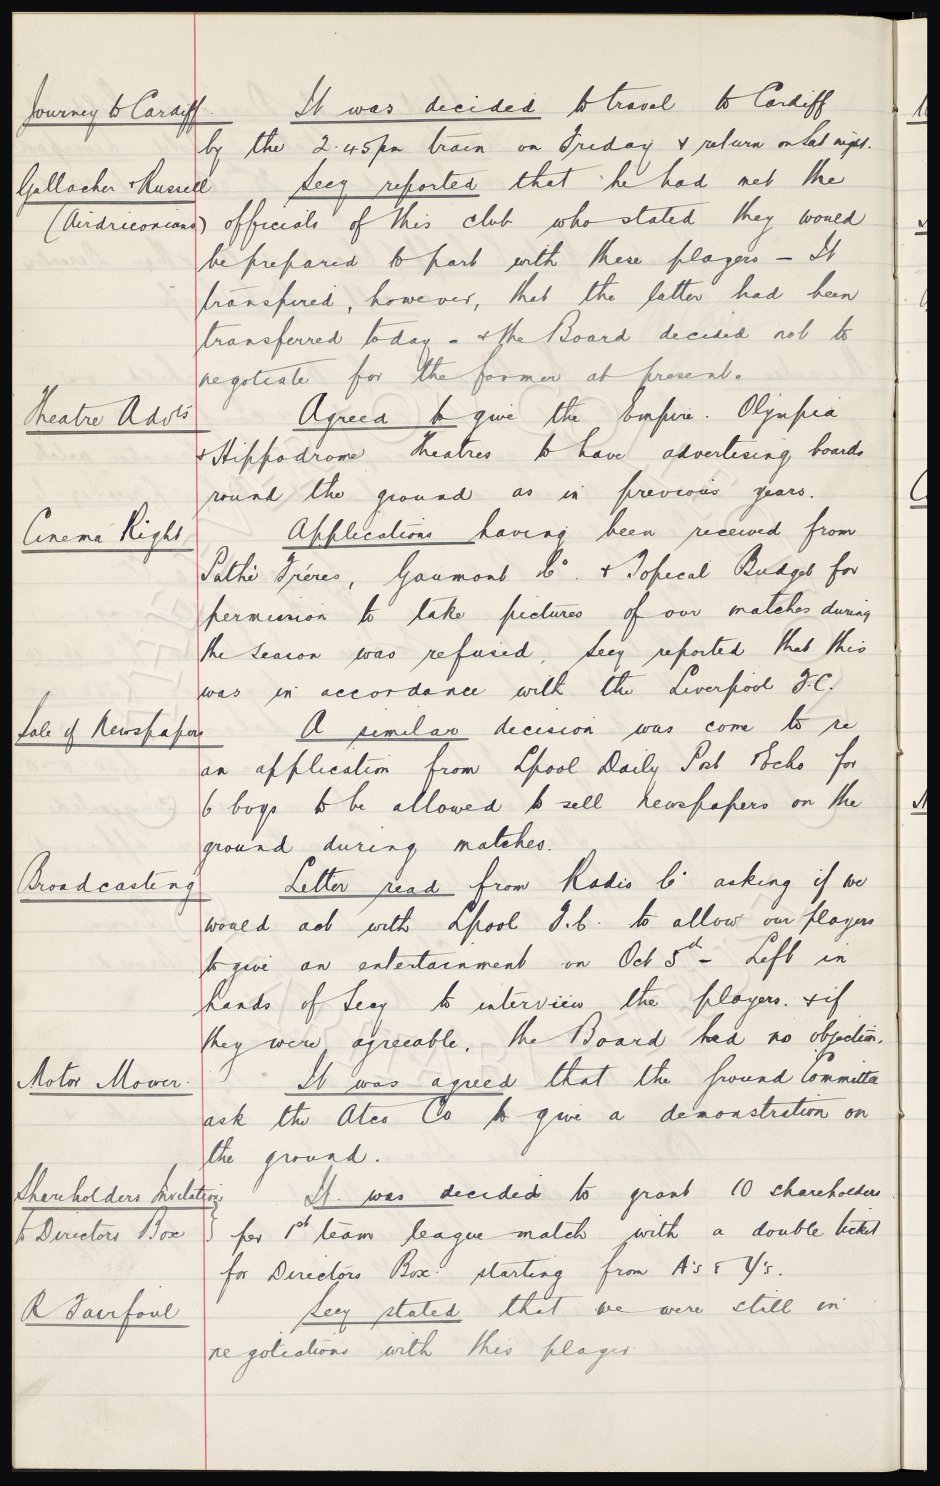 Journey to Cardiff. It was decided to travel to Cardiff
by the 2.45pm train on Friday & return on Sat night.
Gallacher & Russell Secy reported that he had met the
(Airdrieonians) officials of this club who stated they would
be prepared to part with these players — It
transpired, however, that the latter had been
transferred today - & the Board decided not to
negotiate for the former at present.
Theatre Advts Agreed to give the Empire. Olympia
& Hippodrome Theatres to have advertising boards
round the ground as in previous years.
Cinema Right Applications having been received from
Pathé Fréres, Gaumont Co. & Topical Budget for
permission to take pictures of our matches during
the season was refused. Secy reported that this
was in accordance with the Liverpool F.C.
Sale of Newspapers A similar decision was come to re
an application from Lpool Daily Post & Echo for
6 boys to be allowed to sell newspapers on the
ground during matches.
Broadcasting Letter read from Radio Co asking if we
would act with Lpool F.C. to allow our players
to give an entertainment on Oct 5th - Left in
hands of Secy to interview the players. & if
they were agreeable, the Board had no objection.
Motor Mower. It was agreed that the Ground Committee
ask the Atco Co to give a demonstration on
the ground.
Shareholders Invitation It was decided to grant 10 shareholders
to Directors Box } per 1st team league match with a double ticket
for Directors Box. starting from A's & Y's.
R Fairfoul Secy stated that we were still in
negotiations with this player.